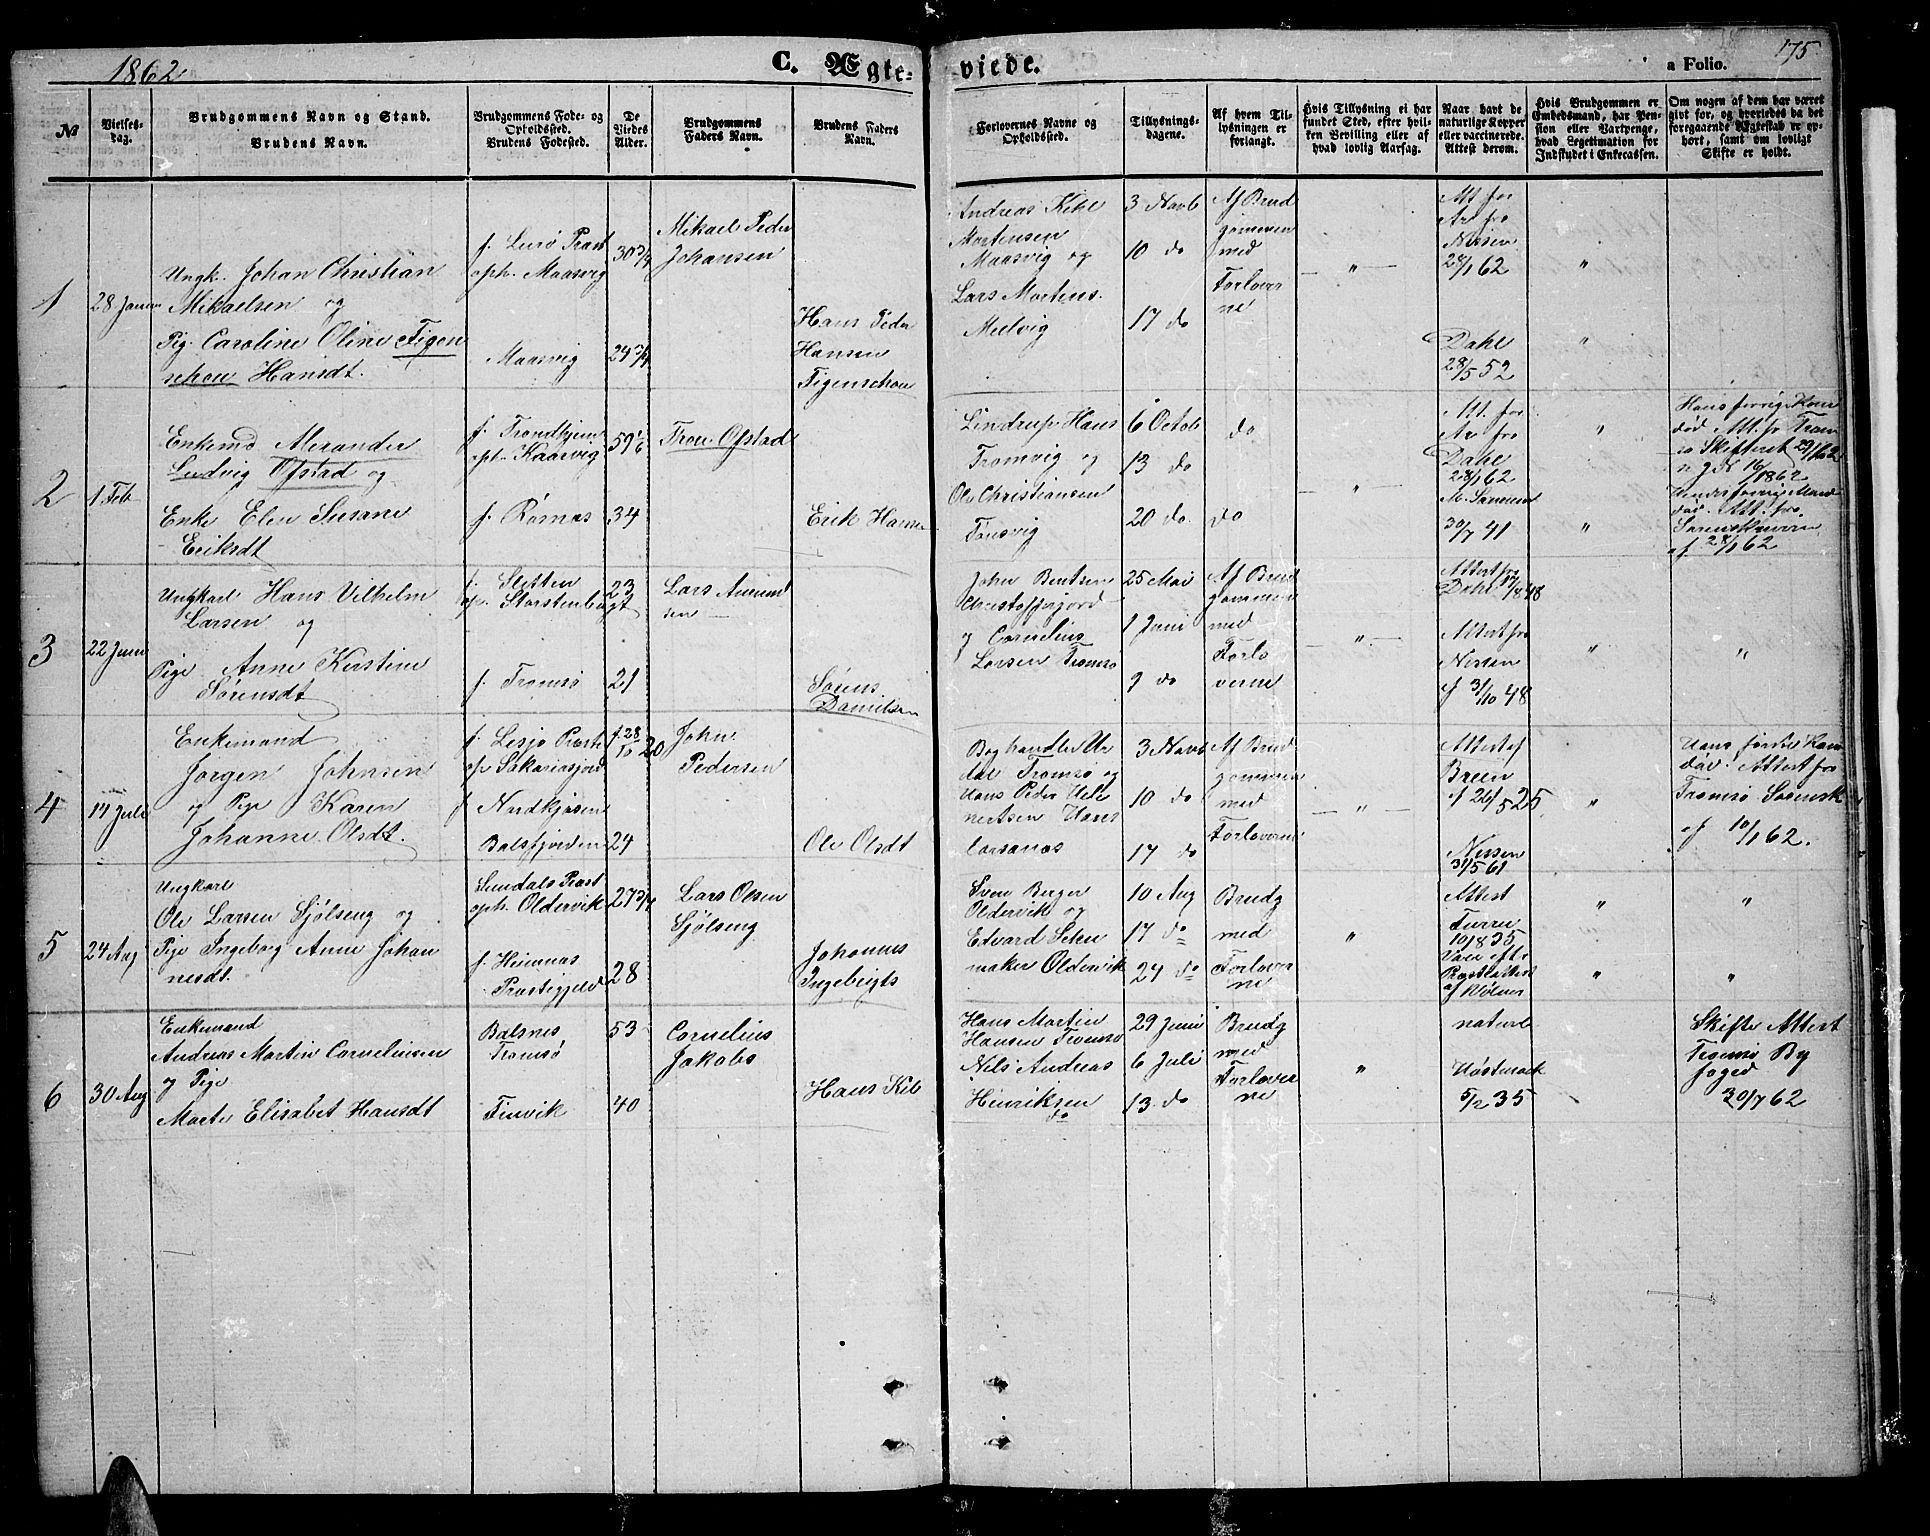 1862
C. Ægte-
viede.
175
a Folio.
№
Vielses-
dag.
Brudgommens Navn og Stand.
Brudens Navn.
Brudgommens Føde- og
Opholdssted.
Brudens Fødested.
De
Viedes
Alder.
Brudgommens
Faders Navn.
Brudens Faders
Navn.
Forlovernes Navne og
Opholdssted.
Tillysnings-
dagene.
Af hvem Til-
lysningen er
forlangt.
Hvis Tillysning ei har
fundet Sted, efter hvil-
ken Bevilling eller af
hvad lovlig Aarsag.
Naar havt de
naturlige Kopper
eller vaccinerede.
Attest derom.
Hvis Brudgommen er
Embedsmand, har Pen-
sion eller Vartpenge,
hvad Legitimation for
Indskudet i Enkecassen.
Om nogen af dem har været
givt før, og hvorledes da det
foregaaende Ægteskab er op-
hørt, samt om lovligt
Skifte er holdt.
1
28 Januar
Ungk. Johan Christian
Mikaelsen og
Pig. Caroline Oline Figen
schou Hansdt.
f. Lurø Præst
oph. Maasvig
Maasvig
30 3/4
24 3/4
Mikael Peder
Johansen
Hans Peder
Hansen
Figenschou
Andreas Kihl
Mortensen
Maasvig og
Lars Mortens.
Melvig
3 Novb
10 do
17 do
Af Brud
gommen
med
Forlover
ne
"
Att fra
Nissen
28/1 62
Dahl
28/5 52
"
"
2
1 Feb
Enkemd Alexander
Ludvig Ofstad og
Enke Elen Susane
Eriksdt
f. Trondhjem
oph. Kaasvig
f. Rømas
59 1/6
34
Tron Ofstad
Erik Hansen
Lindrup Hans
Tromvig og
Ole Christiansen
Tønsvig
6 Octob
13 do
20 do.
do
do
"
Att. fra
Dahl
28/1 62
30/7 41
"
"
Hans forrige Kone
død Att. fr Trom
sø Skifteret 29/1 62
16/1 1862
død. Att. fra
Sorenskriveren
af 28/1 62
3
22 Juni
Ungkarl Hans Vilhelm
Larsen og
Pige Anne Kirstine
Sørensdt
f. Sletten
op. Storstenbugt
f. Tromsø
23
21
Lars Amund
sen
Sørens
Danielsen
John Bentsen
Christoffjord
og Cornelius
Larsen Tromsø
25 Mai
1 Juni
9 do
Af Brud
gommen
med
Forlo
verne
"
Attest fra
Dahl 17/8 48
Attest fra
Nissen
af 3/10 48
"
"
4
14 Juli
Enkemand
Jørgen Johnsen
og Pige Karen
Johanne Olsdt.
f. Lesjø Præst
op. Sakariasjord
f Nordkjosen
Balsfjorden
f. 28/10 20
24
John
Pedersen
Ole Olsdt
Boghandler Ur
dal Tromsø og
Hans Peder Hel
mertsen Hans
larsanæs
3 Novb
10 do
17 do
Af Brud
gommen
med
Forloverne
"
Attest af
Breen
af 26/5 25
Nissen
31/5 61
"
Hans første Kone
død. Attest fra
Tromsø Sorensk
af 10/1 62.
5
24 Aug
Ungkarl
Ole Larsen Sjølseng og
Pige Ingeborg Anne Johan
nesdt.
Sundals Præst
oph. Oldervik
f. Hemnæs
Præstegjeld
27 3/4
28
Lars Olsen
Sjølseng
Johannes
Ingebrigts
Sven Berger
Oldervik og
Edvard Schu
maker Oldervik
10 Aug
17 do
24 do
Brudg
med
Forlover
ne
"
Attest
1835
Præsteattest
af Wølner
"
"
"
"
6
30 Aug
Enkemand
Andreas Martin Corneliussen
og Pige
Marte Elisabet Hansdt
Balsnes
Tromsø
Finvik
53
40
Cornelius
Jakobs
Hans Kil
Hans Martin
Hansen Tromsø
Nils Andreas
Henriksen
do
29 Juni
6 Juli
13 do
Brudg
med
Forlover
ne
"
naturl
Høstmark
5/2 35
Skifte Attest
Tromsø By
foged
30/7 62